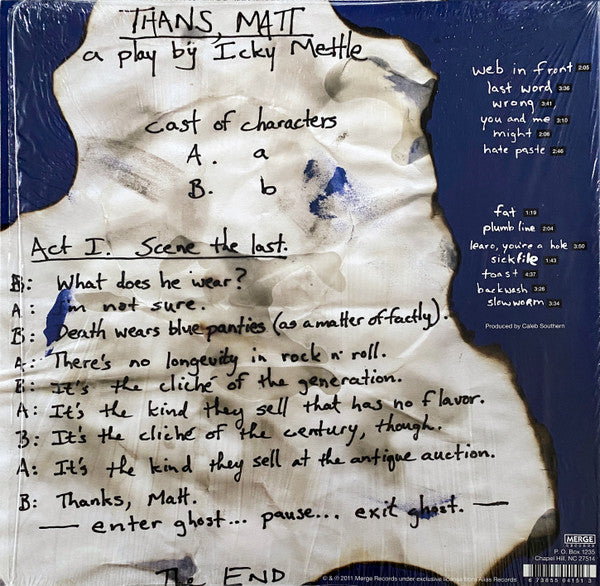 THANS, MATT
a play by Icky Mettle
cast of characters
A. a
B. b
Act I. Scene the last.
B: What does he wear?
A: I'm not sure.
B: Death wears blue panties (as a matter of factly).
A: There's no longevity in rock n' roll.
B: It's the cliché of the generation.
A: It's the kind they sell that has no flavor.
B: It's the cliché of the century, though.
A: It's the kind they sell at the antique auction.
B: Thanks, Matt.
— enter ghost... pause... exit ghost. —
The END
web in front 2:05
last word 3:36
wrong 3:41
you and me 3:10
might 2:06
hate paste 2:46
fat 1:19
plumb line 2:04
learo, you're a hole 3:50
sickfile 1:43
toast 4:37
backwash 3:26
slowworm 3:34
Produced by Caleb Southern
MERGE
RECORDS
P. O. Box 1235
Chapel Hill, NC 27514
© & ℗ 2011 Merge Records under exclusive license from Alias Records